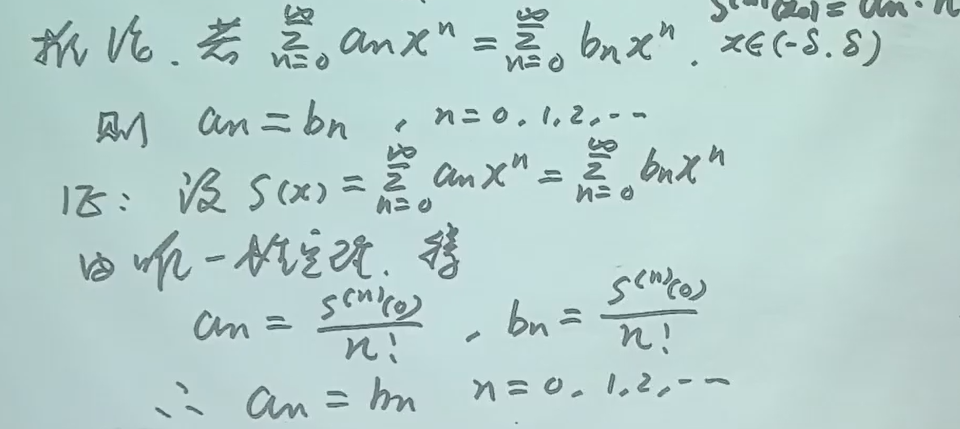 S⁽ⁿ⁾(x₀) = aₙ·n
推论. 若 ∑_{n=0}^{∞} aₙxⁿ = ∑_{n=0}^{∞} bₙxⁿ. x∈(-δ.δ)
则 aₙ = bₙ , n=0.1,2,--
证: 设 S(x) = ∑_{n=0}^{∞} aₙxⁿ = ∑_{n=0}^{∞} bₙxⁿ
由唯一性定理. 得
aₙ = S⁽ⁿ⁾(0)/n! , bₙ = S⁽ⁿ⁾(0)/n!
∴ aₙ = bₙ n=0.1,2,--